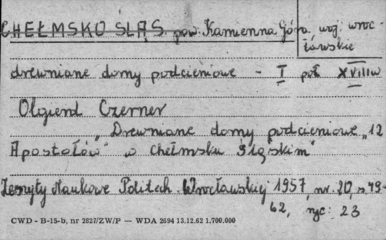 CHEŁMSKO ŚLĄS. pow. Kamienna Góra, woj. wroc-
ławskie
drewniane domy podcieniowe - I poł XVIII w
Olgierd Czerner
"Drewniane domy podcieniowe "12
Apostołów" w Chełmsku Śląskim"
Zeszyty Naukowe Politech. Wrocławskiej 1957, nr. 20, s 49-
62, ryc. 23
CWD - B-15-b, nr 2827/ZW/P — WDA 2694 13.12.62 1.700.000